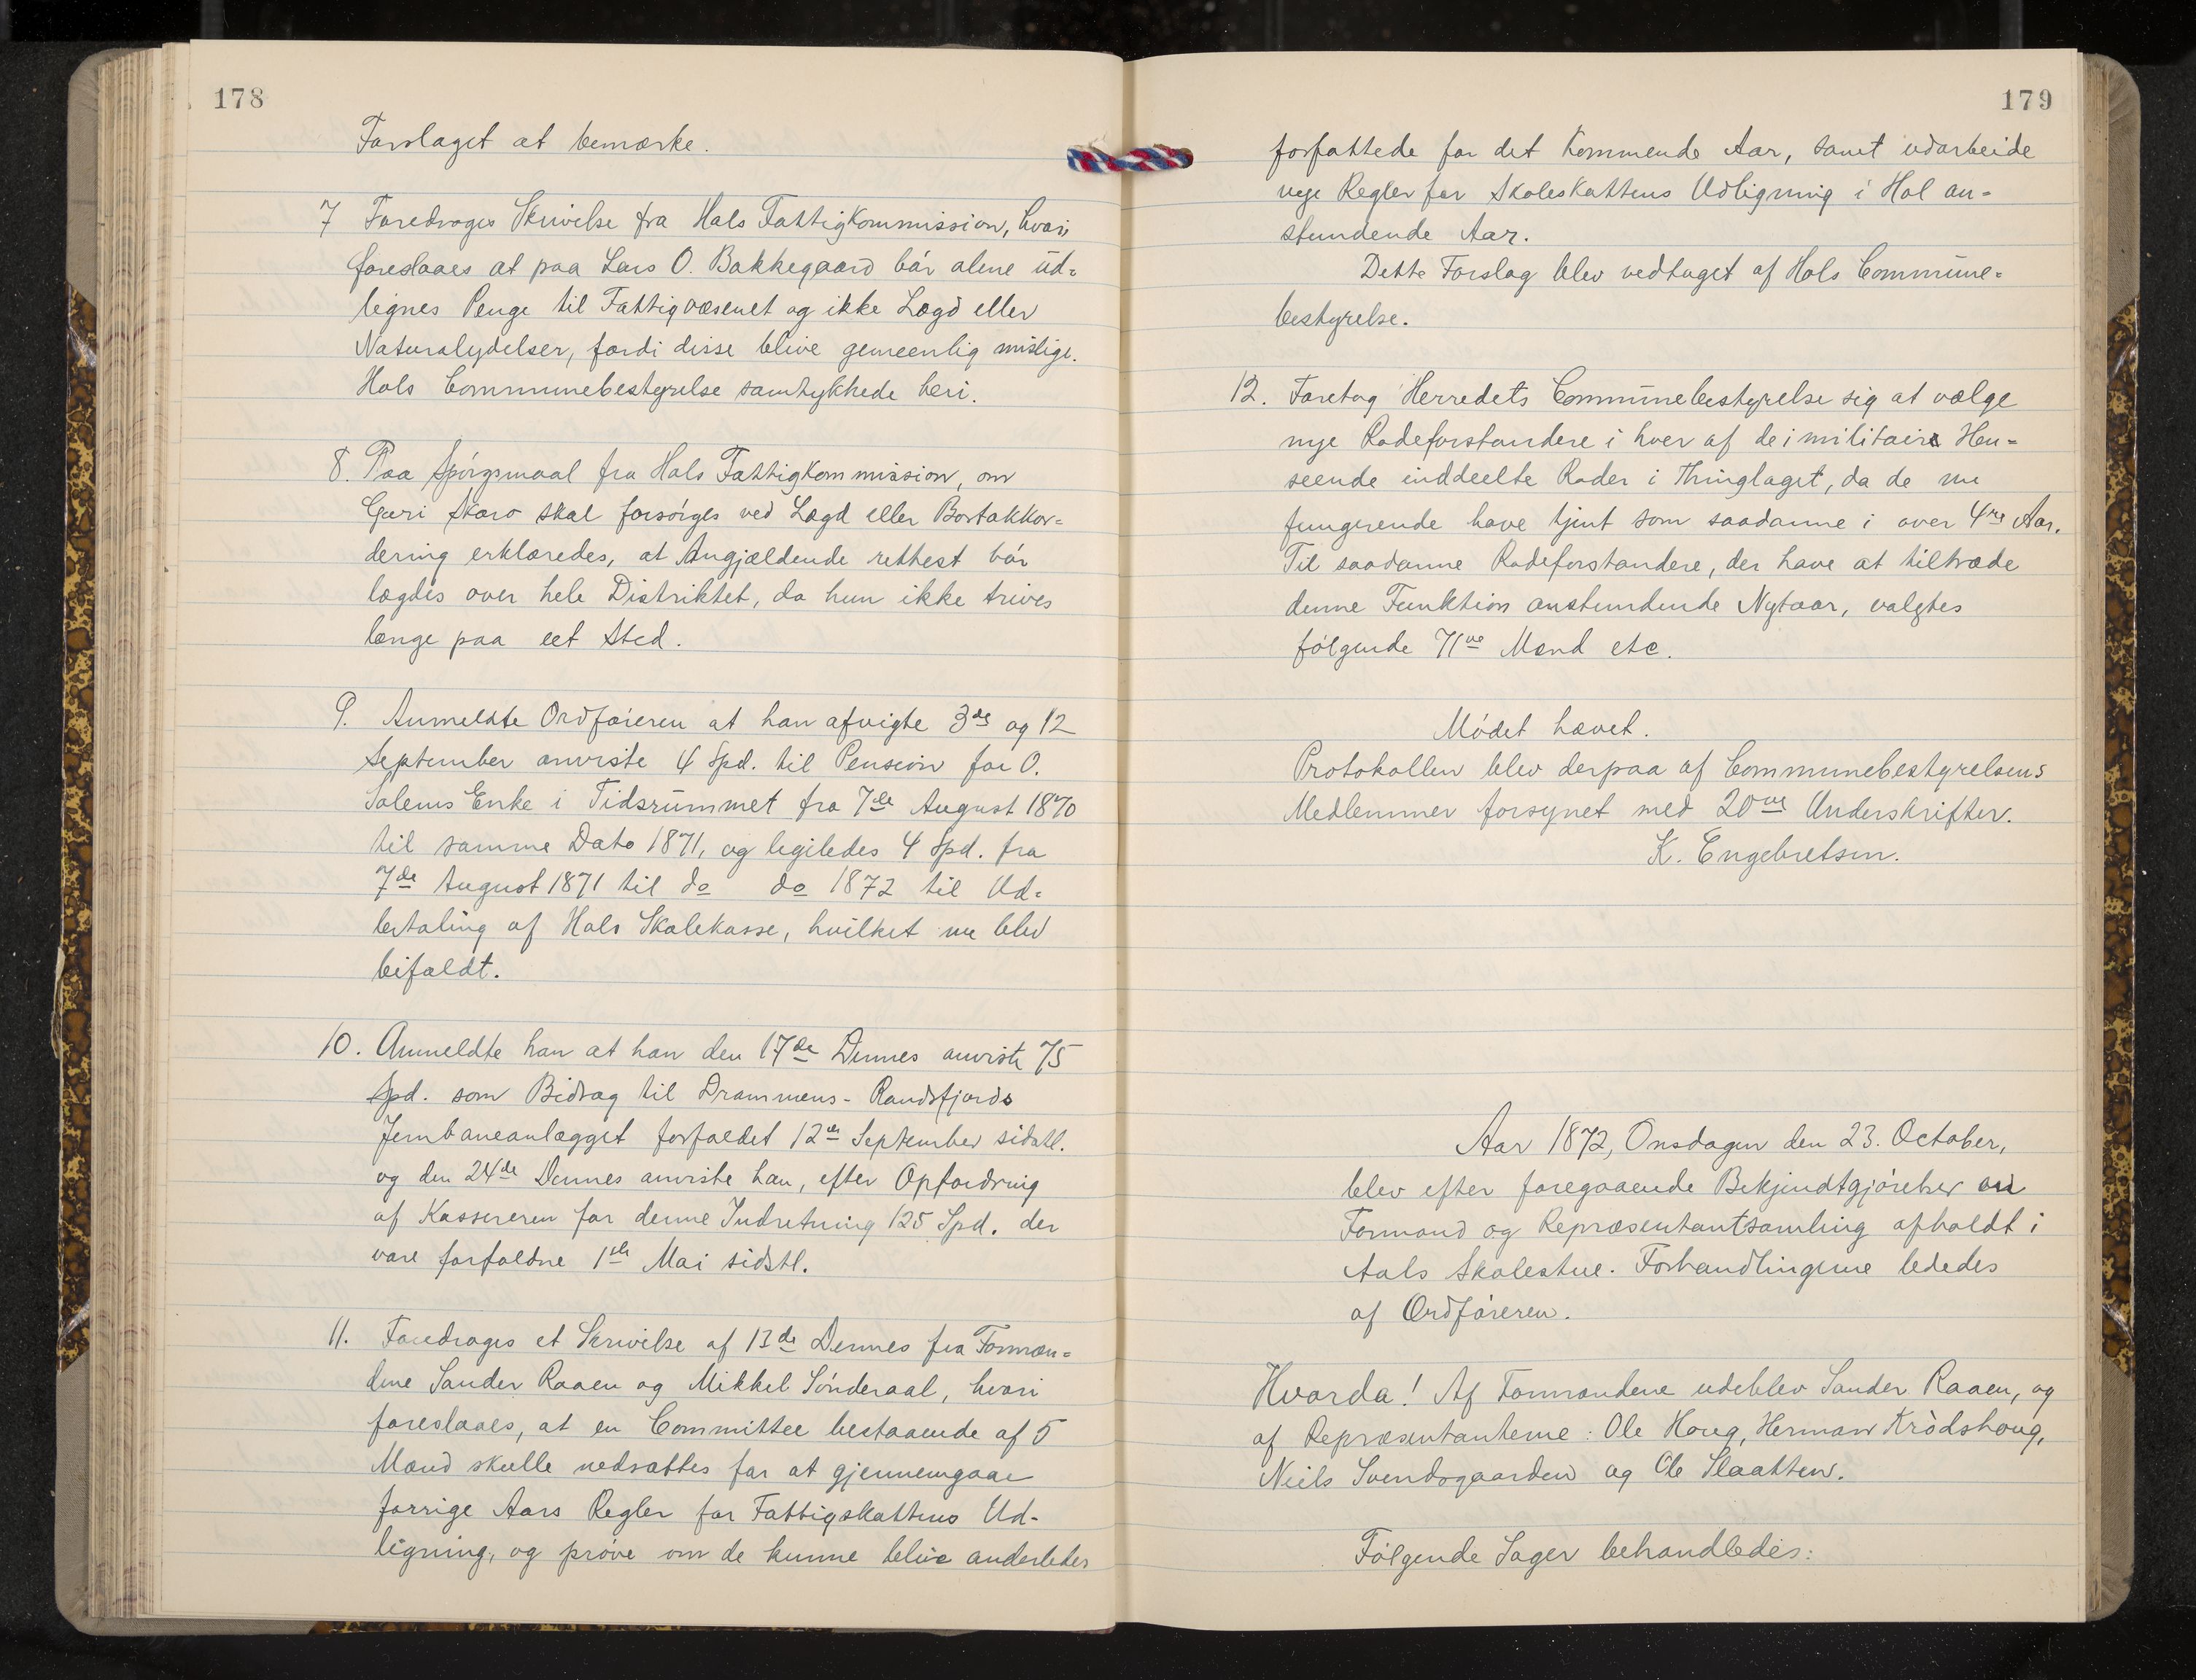 178
Forslaget at bemærke.
7 Foredroges Skrivelse fra Hols Fattigkommission, hvori
foreslaaes at paa Lars O. Bakkegaard bör alene ud=
lignes Penge til Fattigvæsenet og ikke Lægd eller
Naturalydelser, fordi disse blive gemeenlig mislige.
Hols Communebestyrelse samtykkede heri.
8. Paa Spörgsmaal fra Hols Fattigkommission, om
Guri Skaro skal forsörges ved Lægd eller Bortakkor=
dering erklæredes, at Angjældende rettest bör
lægdes over hele Distriktet, da hun ikke trives
længe paa eet Sted.
9. Anmeldte Ordföreren at han afvigte 3de og 12
September anviste 4 Spd. til Pension for O.
Solems Enke i Tidsrummet fra 7de August 1870
til samme Dato 1871, og ligeledes 4 Spd. fra
7de August 1871 til do do 1872 til Ud=
betaling af Hols Skolekasse, hvilket nu blev
bifaldt.
10. Anmeldte han at han den 17de Dennes anviste 75
Spd. som Bidrag til Drammens-Randsfjords
Jernbaneanlægget forfaldet 12te September sidstl.
og den 24de Dennes anviste han, efter Opfordring
af Kassereren for denne Indretning 125 Spd. der
vare forfaldne 1ste Mai sidstl.
11. Foredroges et Skrivelse af 13de Dennes fra Formæn=
dene Sander Raaen og Mikkel Sönderaal, hvori
foreslaaes, at en Committee bestaaende af 5
Mænd skulle nedsættes for at gjennemgaae
forrige Aars Regler for Fattigskattens Ud-
ligning, og pröve om de kunne blive anderledes
179
forfattede for det Kommende Aar, samt udarbeide
nye Regler for Skoleskattens Udligning i Hol an=
stundende Aar.
Dette Forslag blev vedtaget af Hols Commune=
bestyrelse.
12. Foretog Herredets Communebestyrelse sig at vælge
nye Rodeforstandere i hver af de i militaire Hen=
seende inddeelte Roder i Thinglaget, da de nu
fungerende have tjent som saadanne i over 4re Aar.
Til saadanne Rodeforstandere, der have at tiltræde
denne Funktion anstundende Nytaar, valgtes
følgende 71ve Mænd etc.
Mödet hævet.
Protokollen blev derpaa af Communebestyrelsens
Medlemmer forsynet med 20ve Underskrifter.
K. Engebretsen.
Aar 1872, Onsdagen den 23. October,
blev efter foregaaende Bekjendtgjörelser en
Formand og Repræsentantsamling afholdt i
Aals Skolestue. Forhandlingerne lededes
af Ordföreren.
Hvorda! Af Formændene udeblev Sander Raaen, og
af Repræsentanterne: Ole Houg, Herman Krödshoug,
Niels Svendsgaarden og Ole Slaatten.
Fölgende Sager behandledes: